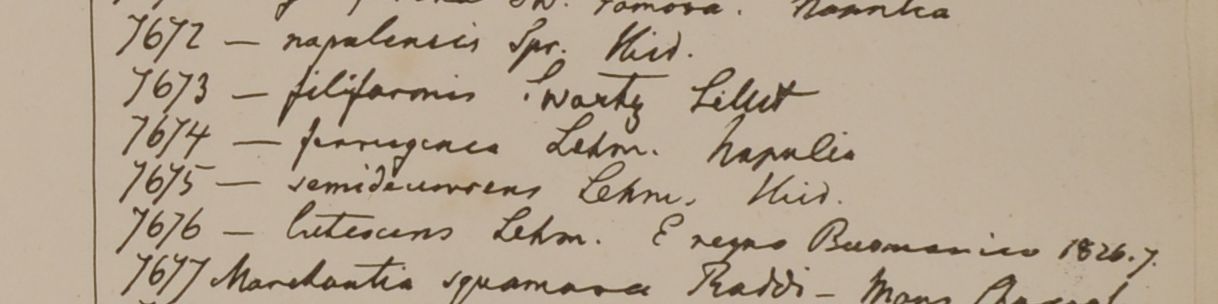 Sw. Pomova. Napulia
7672 — napulensis Spr. Ibid.
7673 — filiformis Swartz Sillet
7674 — ferruginea Lehm. Napulia
7675 — semidecurrens Lehm. Ibid.
7676 — lutescens Lehm. E regno Burmanico 1826.7.
7677 Marchantia squamosa Raddi — Mons